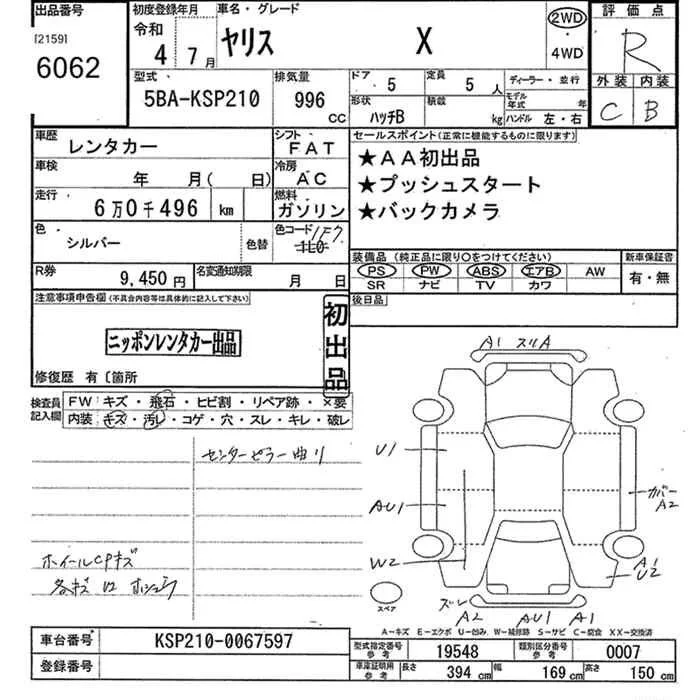 出品番号 初度登録年月 車名・グレード 2WD 評価点
[2159] 令和 ヤリス X ・ R
6062 4年 7月 4WD
外装 内装
C B
型式 排気量 ドア 定員 ディーラー・並行
5BA-KSP210 996 CC 5 5人 モデル年式 年
形状 積載
ハッチB kg ハンドル 左・右
車歴 シフト セールスポイント(正常に機能するものに限ります)
レンタカー FAT ★AA初出品
車検 冷房 ★プッシュスタート
年 月( 日) AC ★バックカメラ
走行 燃料
6万0千496 km ガソリン
色 色コード 1F7
シルバー 色替
装備品(純正品に限り○をつけてください) 新車保証書
PS PW ABS エアB AW 有・無
SR ナビ TV カワ
R券 名変通知期限
9,450円 月 日
後日品
注意事項申告欄(不具合内容等は具体的に記入して下さい) 初出品
ニッポンレンタカー出品
修復歴 有〔箇所
検査員記入欄 FW キズ・飛石・ヒビ割・リペア跡・×要
内装 キズ・汚レ・コゲ・穴・スレ・キレ・破レ
センターピラー曲り
ホイールCPキズ
A1 スリA
U1
AU1 カバー A2
W2 A1 U2
スペア
ズレ A2 AU1 A1
A-キズ E-エクボ U-凹み W-補修跡 S-サビ C-腐食 XX-交換済
車台番号 KSP210-0067597
登録番号
型式指定番号 参考 19548 類別区分番号 参考 0007
車庫証明用 参考 長さ 394 cm 幅 169 cm 高さ 150 cm